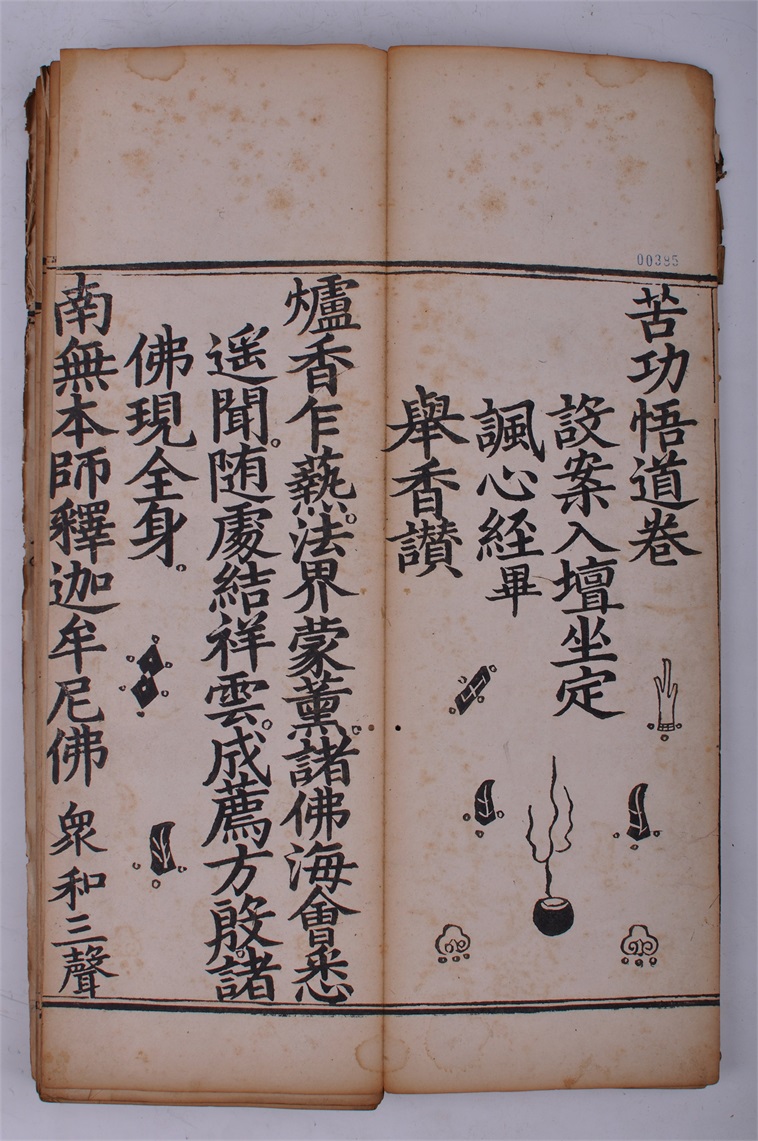 00385
苦功悟道卷
設案入壇坐定
諷心經畢
舉香讚
爐香乍爇。法界蒙薰。諸佛海會悉
遥聞。随處結祥雲。成薦方殷。諸
佛現全身。
南無本師釋迦牟尼佛 衆和三聲